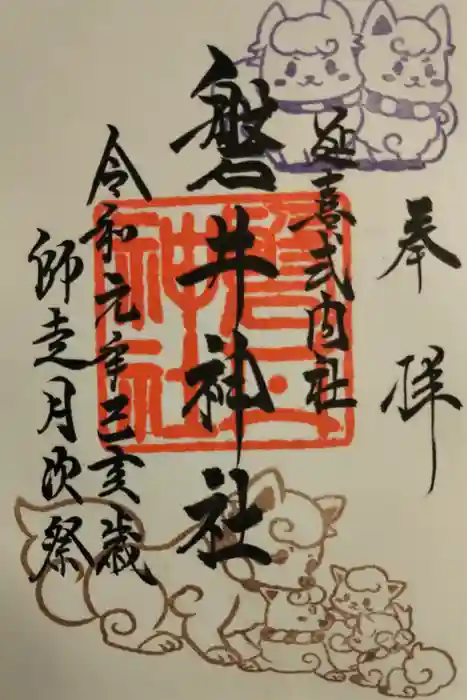 奉拝
延喜式内社
磐井神社
令和元年己亥歳
師走月次祭
磐井神社